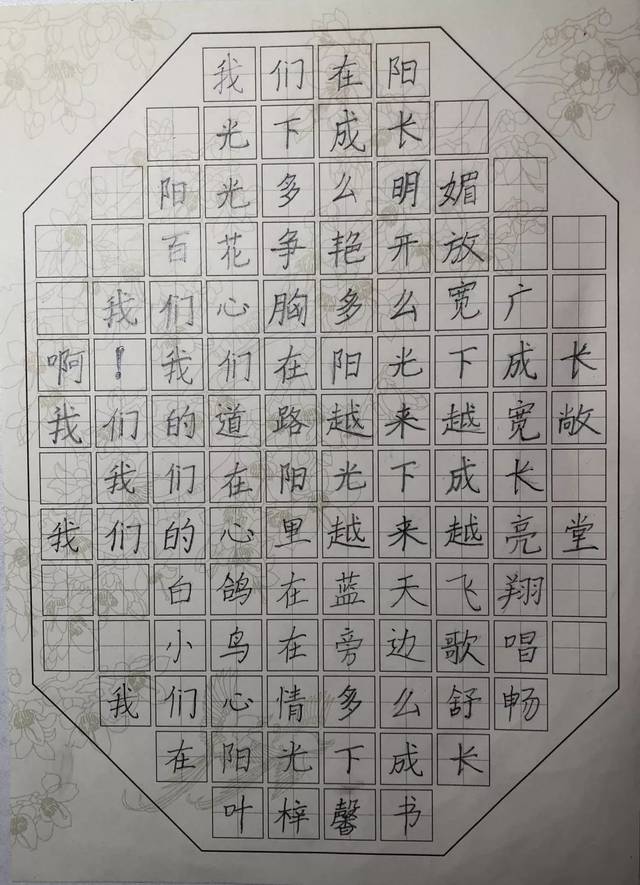 我们在阳
光下成长
阳光多么明媚
百花争艳开放
我们心胸多么宽广
啊！我们在阳光下成长
我们的道路越来越宽敞
我们在阳光下成长
我们的心里越来越亮堂
白鸽在蓝天飞翔
小鸟在旁边歌唱
我们心情多么舒畅
在阳光下成长
叶梓馨书